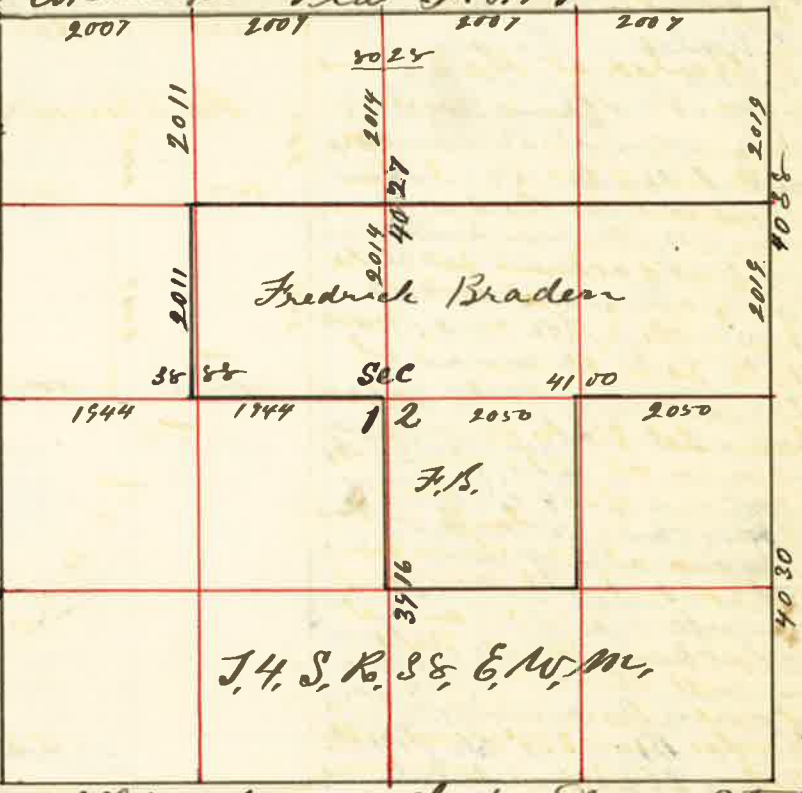 2007 2007 2007 2007
8028
2011 2014 2019
40 27
40 38
2011 2014 2019
Fredrick Braden
38 88 Sec 41 00
1944 1944 12 2050 2050
F.B.
39 16
40 30
T. 4. S, R. 38, E. W. M.